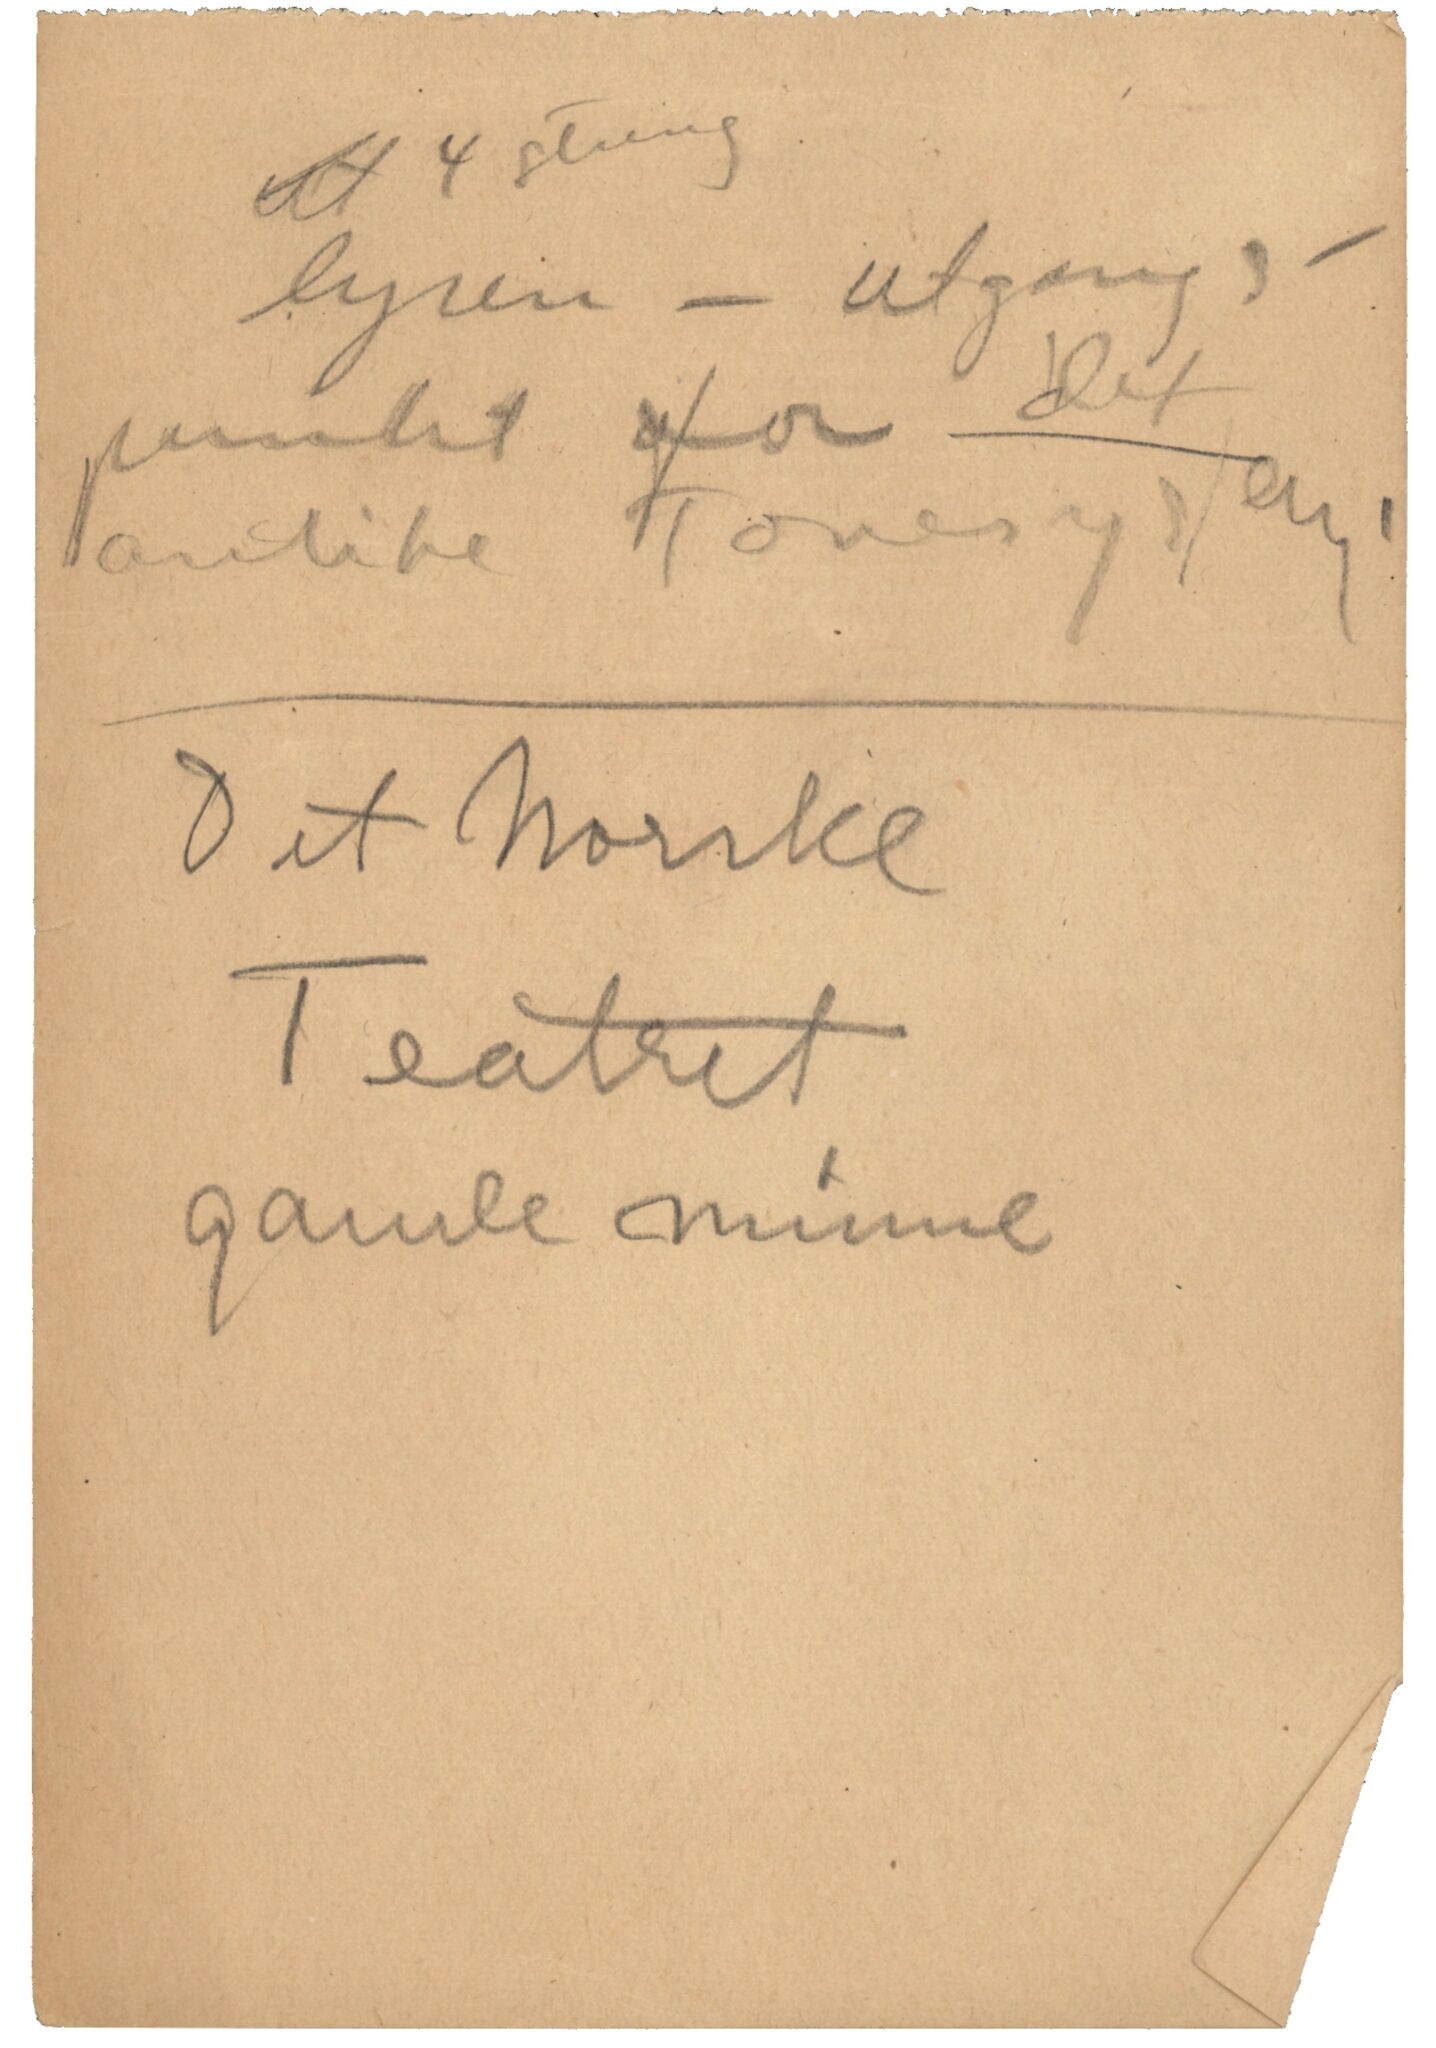 4 streng
lyren – utgangs-
punkt for det
antike Tonesystem
Det Norske
Teatret
gamle minne